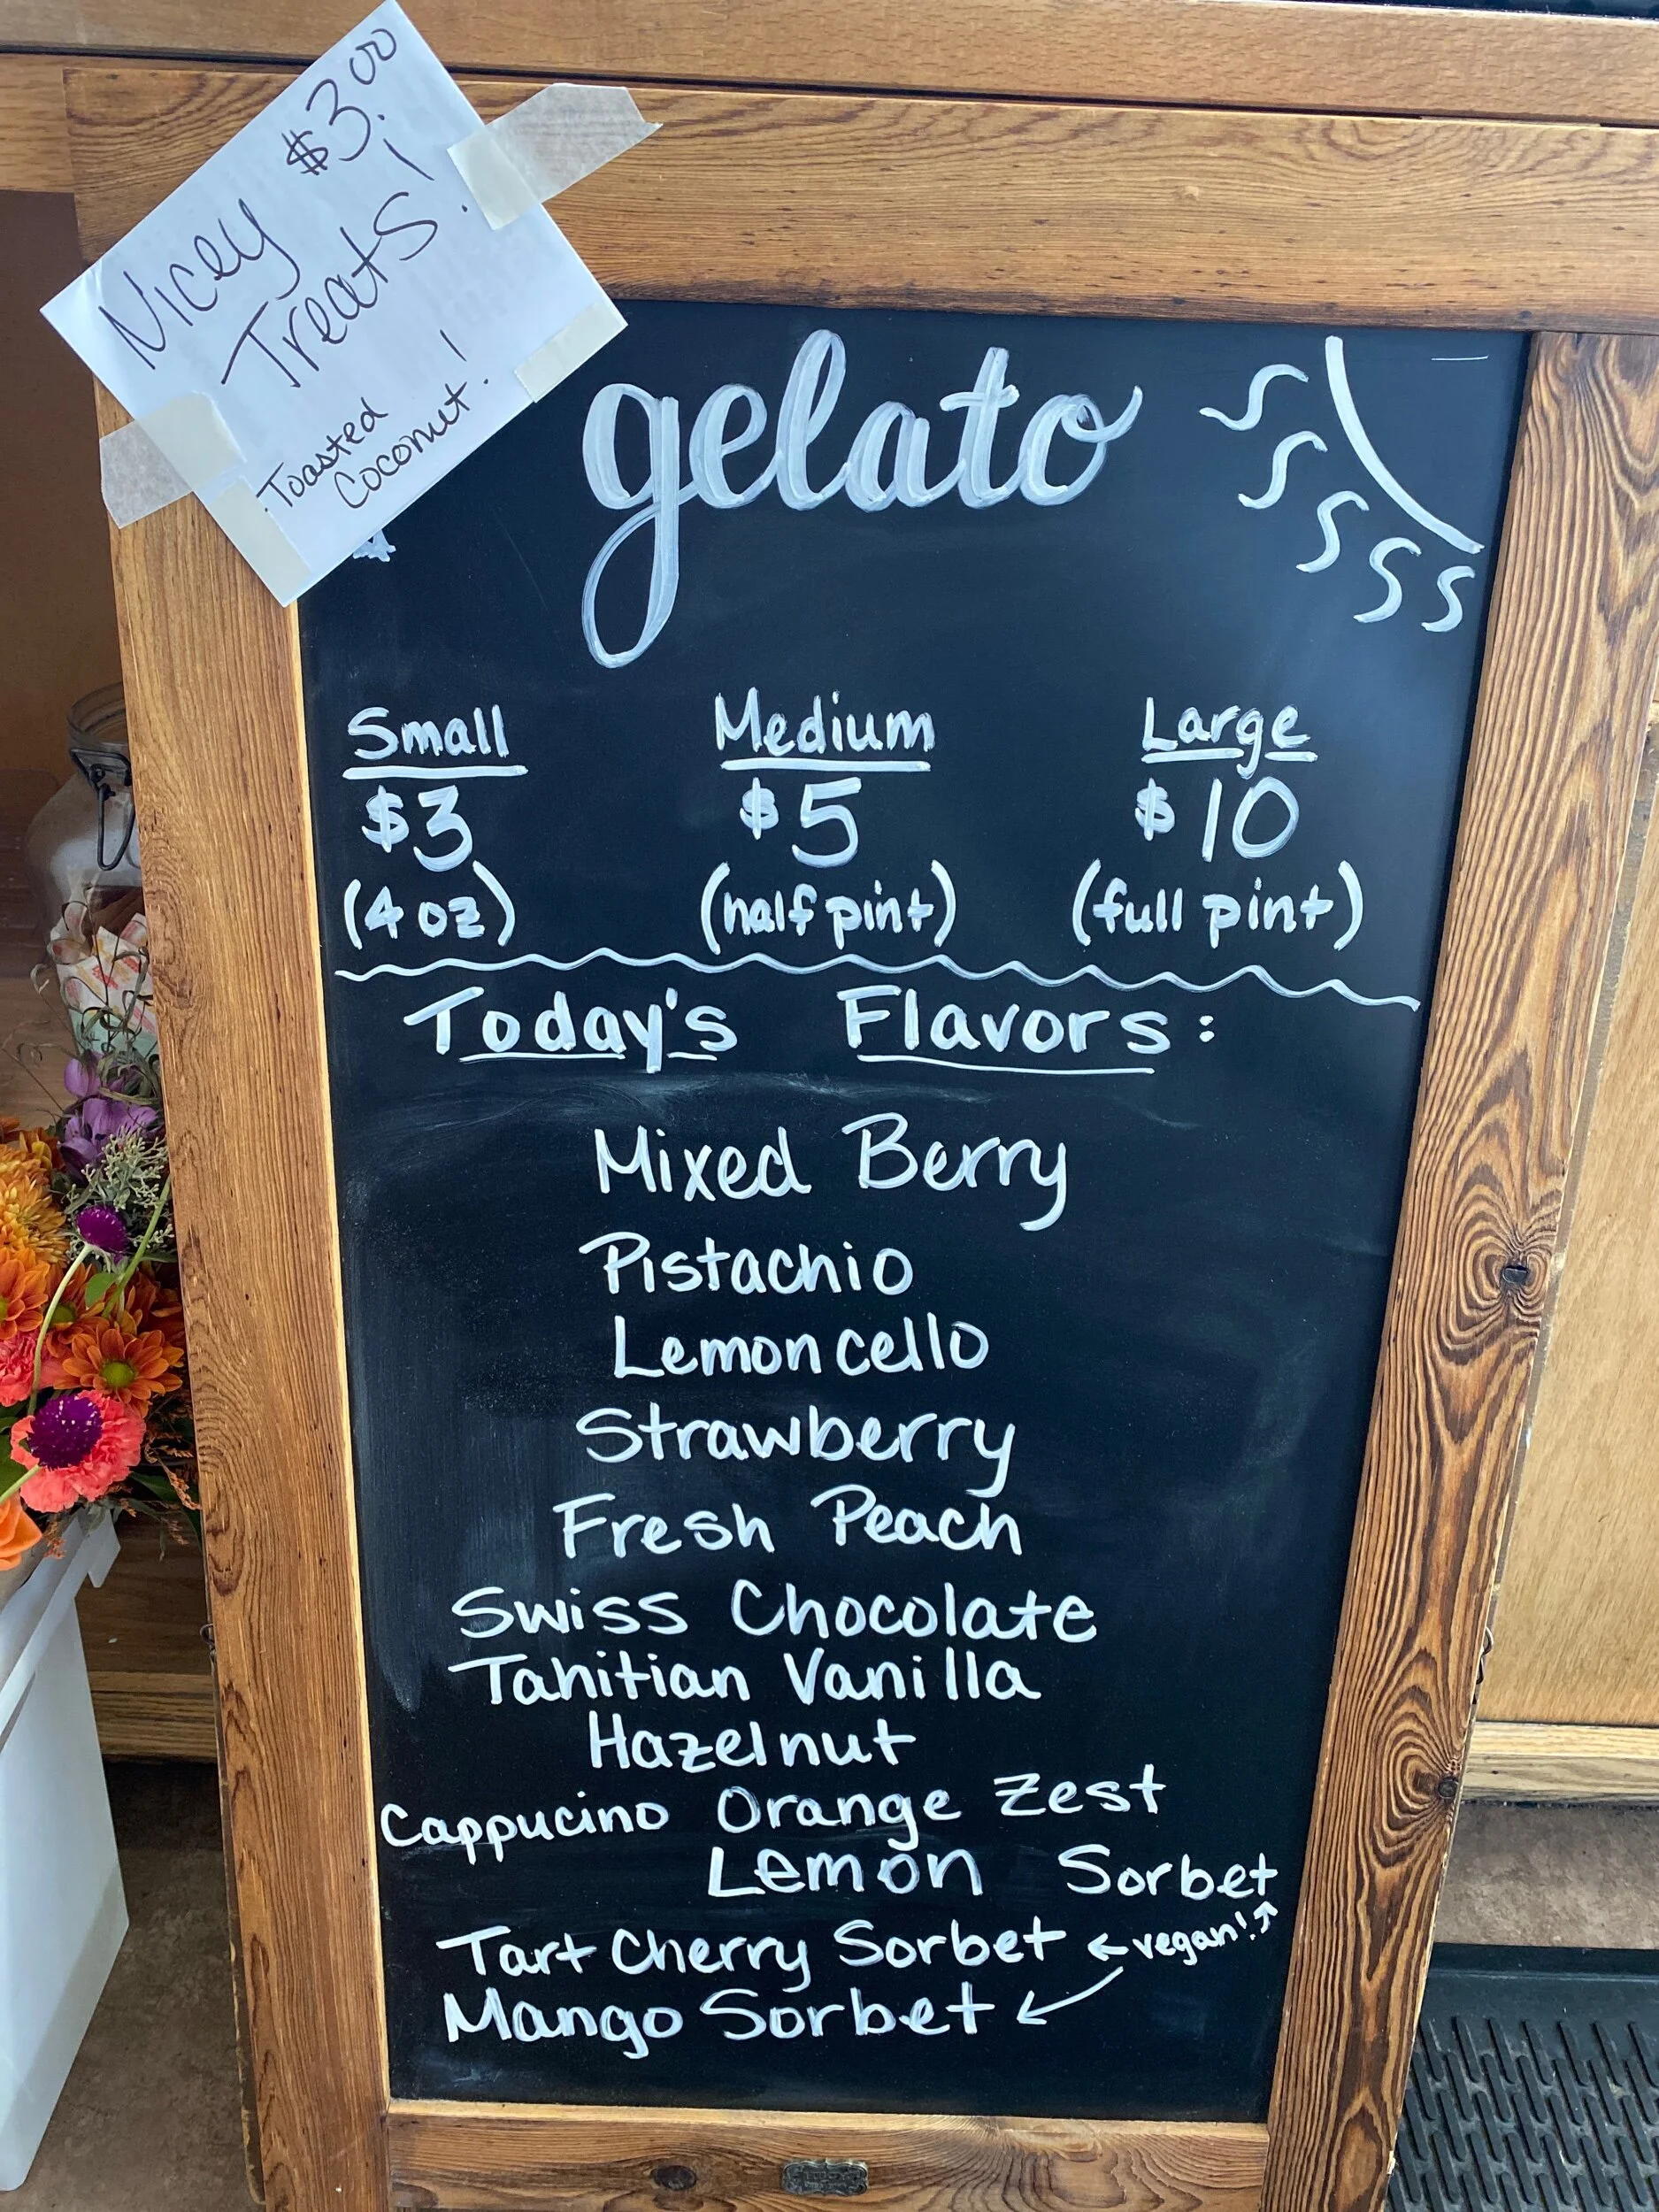 Nicey $3.00
Treats!
Toasted
Coconut!
gelato
Small Medium Large
$3 $5 $10
(4 oz) (half pint) (full pint)
Today's Flavors:
Mixed Berry
Pistachio
Lemoncello
Strawberry
Fresh Peach
Swiss Chocolate
Tahitian Vanilla
Hazelnut
Cappucino Orange Zest
Lemon Sorbet
Tart Cherry Sorbet ← vegan! ↗
Mango Sorbet ↙